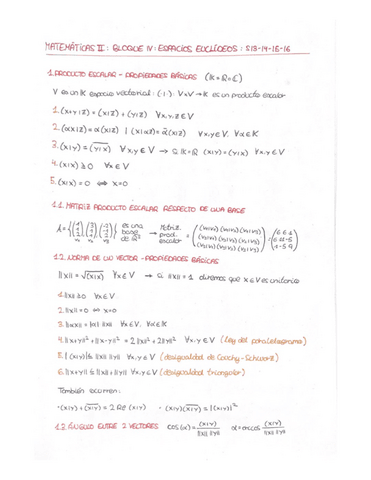 MATEMÁTICAS II: BLOQUE IV: ESPACIOS EUCLÍDEOS: S13-14-15-16
1. PRODUCTO ESCALAR - PROPIEDADES BÁSICAS (K=R ó C)
V es un K espacio vectorial: (·|·): V×V→K es un producto escalar
1. (x+y|z) = (x|z) + (y|z) ∀x,y,z∈V
2. (αx|z) = α(x|z) | (x|αz) = ᾱ(x|z) ∀x,y∈V. ∀α∈K
3. (x|y) = \overline{(y|x)} ∀x,y∈V → Si K=R (x|y) = (y|x) ∀x,y∈V
4. (x|x) ≥ 0 ∀x∈V
5. (x|x) = 0 ⇔ x=0
1.1. MATRIZ PRODUCTO ESCALAR RESPECTO DE UNA BASE
es una base de → Matriz prod. escalar
1.2. NORMA DE UN VECTOR - PROPIEDADES BÁSICAS
||x|| = √(x|x) ∀x∈V → si ||x|| = 1 diremos que x∈V es unitario
1. ||x|| ≥ 0 ∀x∈V
2. ||x|| = 0 ⇔ x=0
3. ||αx|| = |α| ||x|| ∀x∈V, ∀α∈K
4. ||x+y||² + ||x-y||² = 2||x||² + 2||y||² ∀x,y∈V (Ley del paralelogramo)
5. |(x|y)| ≤ ||x|| ||y|| ∀x,y∈V (desigualdad de Cauchy-Schwarz)
6. ||x+y|| ≤ ||x|| + ||y|| ∀x,y∈V (desigualdad triangular)
También ocurren:
· (x|y) + \overline{(x|y)} = 2 Re (x|y) · (x|y)\overline{(x|y)} = |(x|y)|²
1.3. ÁNGULO ENTRE 2 VECTORES cos(α) = (x|y) / ||x|| ||y|| α = arccos (x|y) / ||x|| ||y||